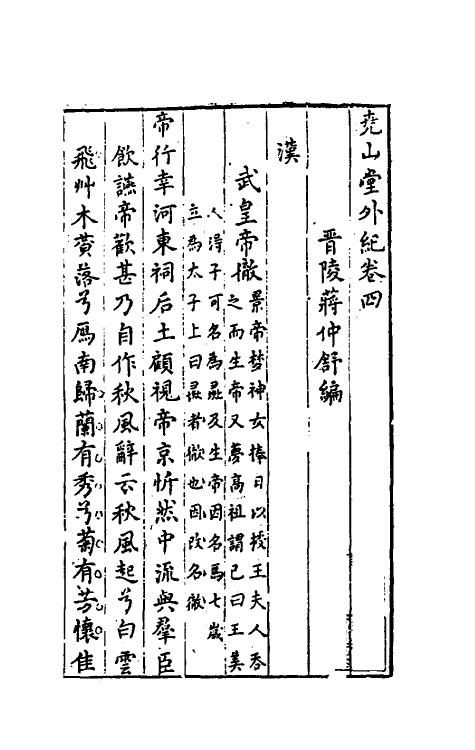 堯山堂外紀卷四
晋陵蔣仲舒編
漢
武皇帝撤
景帝梦神女捧日以授王夫人吞
之而生帝又夢高祖謂已曰王美
人得子可名為彘及生帝因名焉七歲
立為太子上曰彘者徹也因改名徹
帝行幸河東祠后土顧視帝京忻然中流與羣臣
飲讌帝歡甚乃自作秋風辭云秋風起兮白雲
飛艸木黄落兮鴈南歸蘭有秀兮菊有芳懷佳